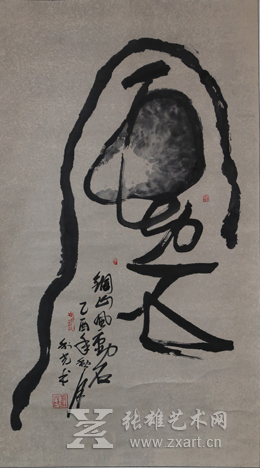 風動石
銅山風動石
乙酉年秋月
张雄艺术网
www.zxart.cn